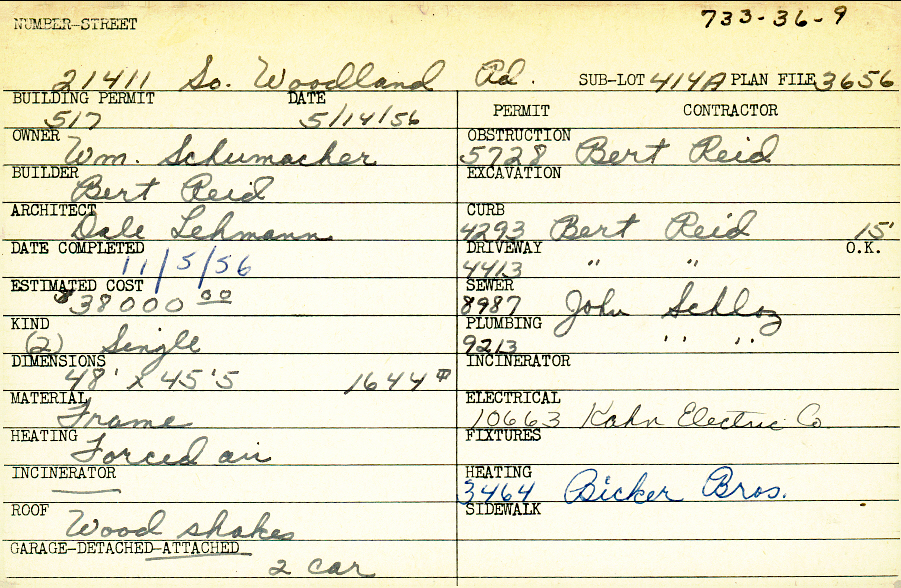 733-36-9
NUMBER-STREET
21411 So. Woodland Rd. SUB-LOT 414A PLAN FILE 3656
BUILDING PERMIT DATE
517 5/14/56
PERMIT CONTRACTOR
OWNER Wm. Schumacher
OBSTRUCTION
5728 Bert Reid
BUILDER Bert Reid
EXCAVATION
ARCHITECT Dale Lehmann
CURB
4293 Bert Reid 15'
DATE COMPLETED 11/5/56
DRIVEWAY O.K.
4413 " "
ESTIMATED COST $38000 00
SEWER
8987 John Schloz
KIND (2) Single
PLUMBING
9213 " "
DIMENSIONS 48' x 45'5 1644
INCINERATOR
MATERIAL Frame
ELECTRICAL
10663 Kahn Electric Co.
HEATING Forced air
FIXTURES
INCINERATOR —
HEATING
3464 Bicker Bros.
ROOF Wood shakes
SIDEWALK
GARAGE-DETACHED-ATTACHED
2 car